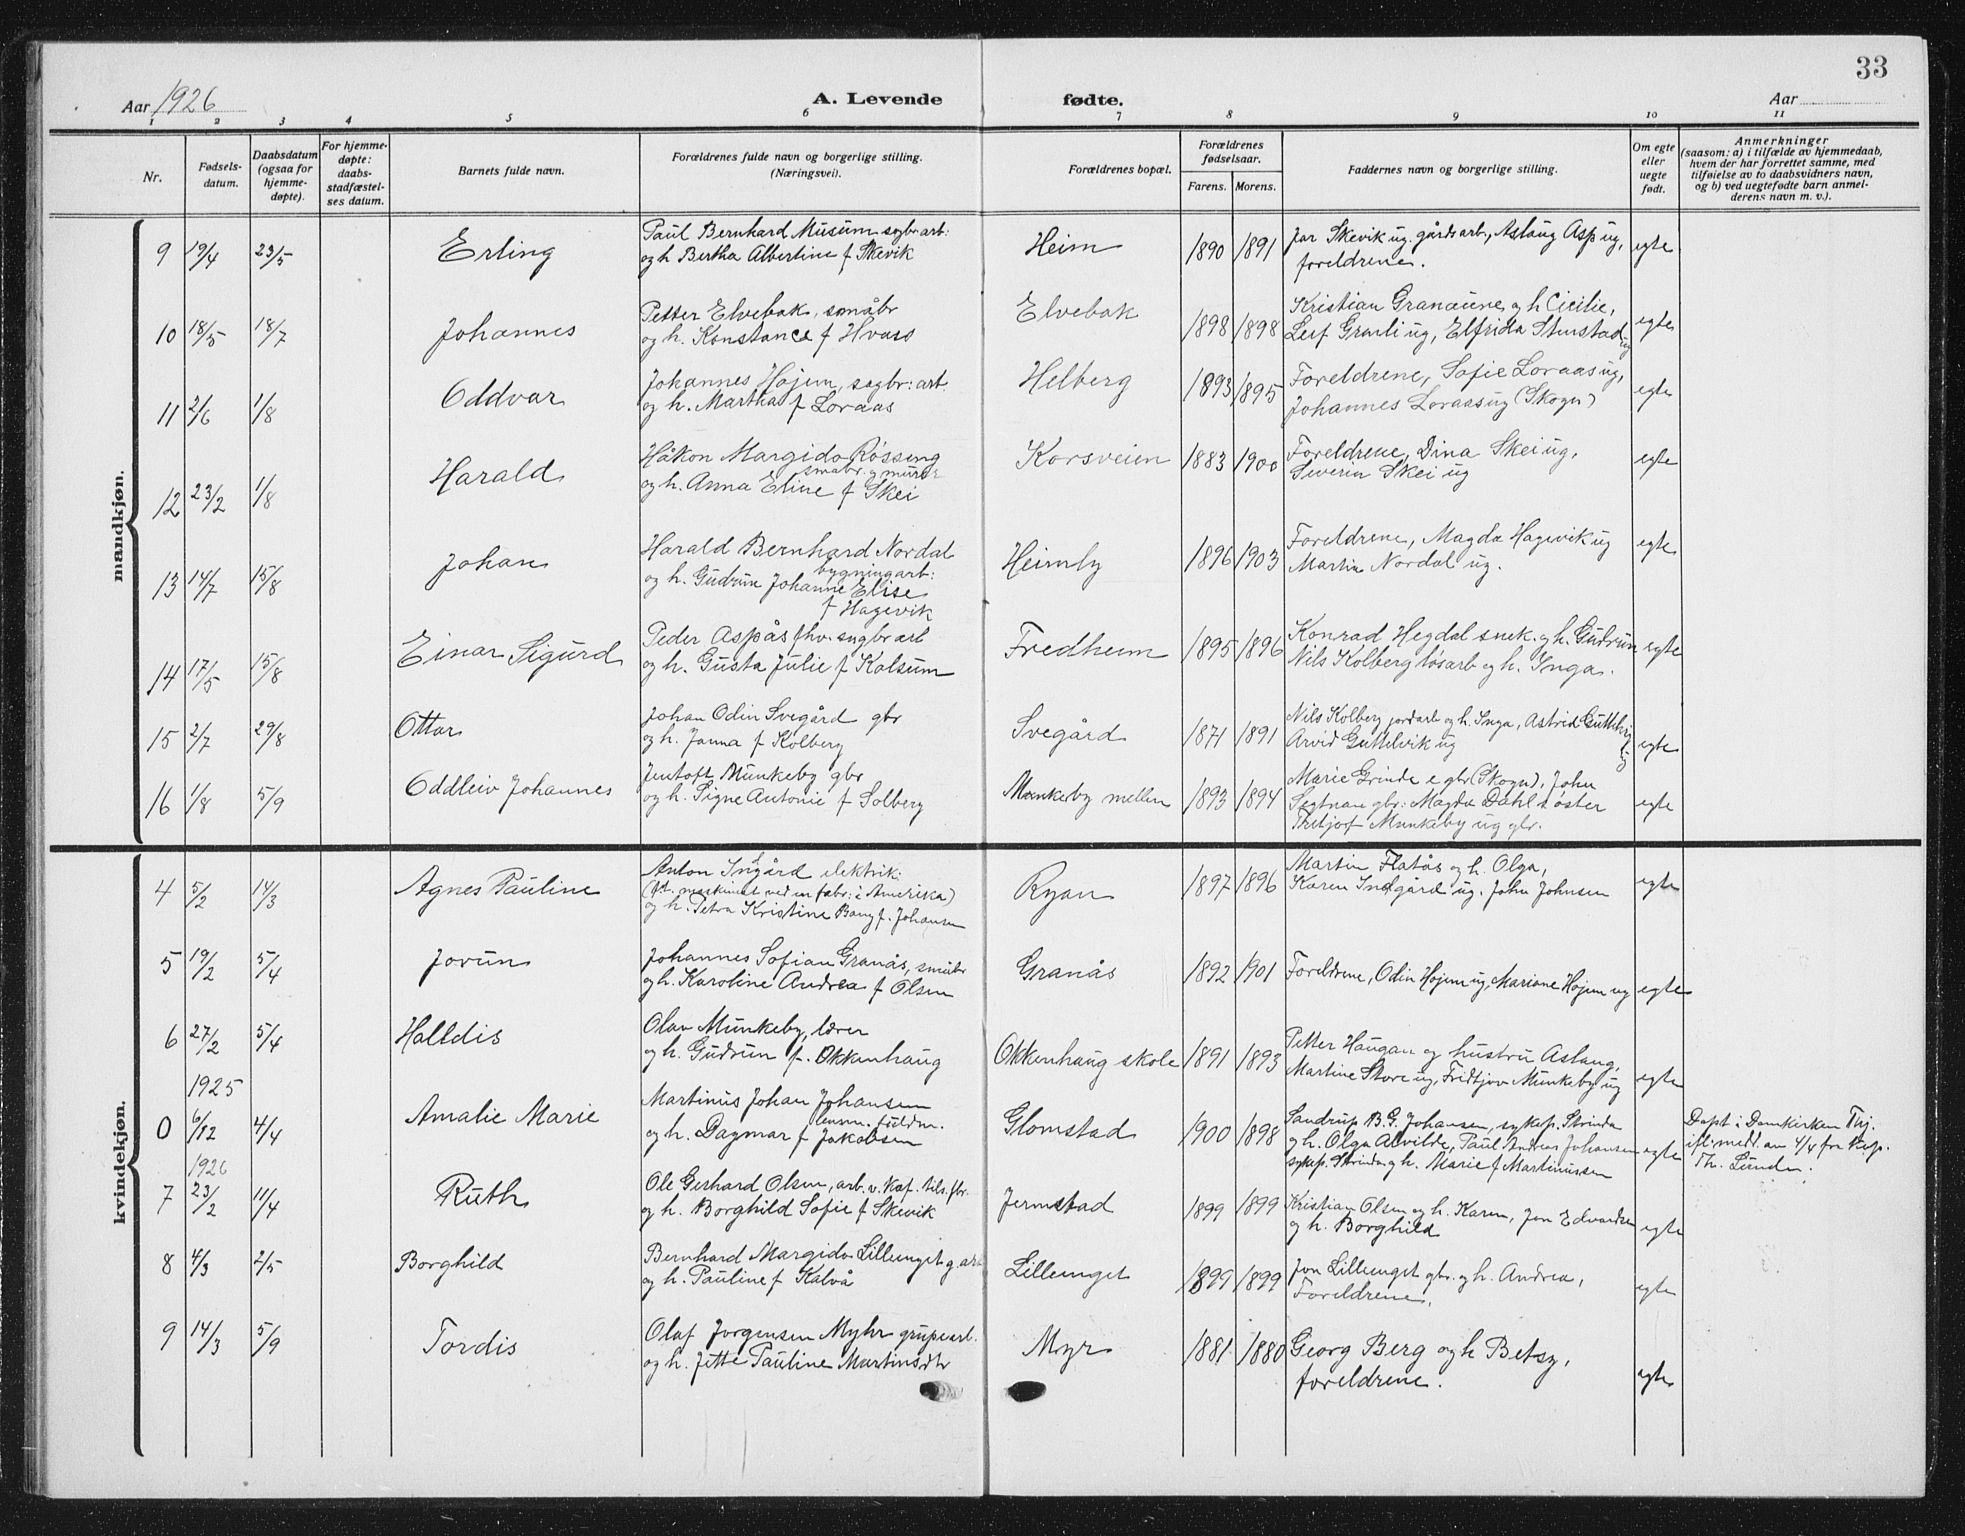 33
Aar 1926 A. Levende fødte. Aar
1 2 3 4 5 6 7 8 9 10 11
Nr.
Fødsels-
datum.
Daabsdatum
(ogsaa for
hjemme-
døpte).
For hjemme-
døpte:
daabs-
stadfæstel-
ses datum.
Barnets fulde navn.
Forældrenes fulde navn og borgerlige stilling.
(Næringsvei).
Forældrenes bopæl.
Forældrenes
fødselsaar.
Farens. Morens.
Faddernes navn og borgerlige stilling.
Om egte
eller
uegte
født.
Anmerkninger
(saasom: a) i tilfælde av hjemmedaab,
hvem der har forrettet samme, med
tilføielse av to daabsvidners navn,
og b) ved uegtefødte barn anmel-
derens navn m. v.).
mandkjøn.
9 19/4 23/5 Erling
Paul Bernhard Musum sagbr arb:
og h Bertha Albertine f Skevik
Heim 1890 1891
Skevik ug. gårdsarb., Aslaug Asp ug,
foreldrene.
egte
10 18/5 18/7 Johannes
Petter Elvebak, småbr
og h. Konstance f Hvass
Elvebak 1898 1898
Kristian Granaune og h Cicilie,
Leif Granli ug, Elfrida Stenstad ug
egte
11 2/6 1/8 Oddvar
Johannes Højem, sagbr: arb.
og h. Martha f Loraas
Helberg 1893 1895
Foreldrene, Sofie Loraas ug,
Johannes Loraas ug (Skogn)
egte
12 23/2 1/8 Harald
Håkon Margido Røssing
småbr. og murer
og h. Anna Eline f Skei
Korsveien 1883 1900
Foreldrene, Dina Skei ug,
Severin Skei ug
egte
13 14/7 15/8 Johan
Harald Bernhard Nordal
bygningarb:
og h. Gudrun Johanne Elise
f Hagevik
Heimly 1896 1903
Foreldrene, Magda Hagevik ug
Martin Nordal ug.
egte
14 17/5 15/8 Einar Sigurd
Peder Aspås fhv. sagbr arb
og h. Gusta Julie f Kolsum
Fredheim 1895 1896
Konrad Hegdal snek. og h. Gudrun
Nils Kolberg løsarb og h. Inga.
egte
15 2/7 29/8 Ottar
Johan Odin Svegård gbr
og h. Janna f Kolberg
Svegård 1871 1891
Nils Kolberg jordarb og h. Inga, Astrid Guttelvig
Arvid Guttelvik ug
egte
16 1/8 5/9 Oddleiv Johannes
Jentoft Munkeby gbr
og h. Signe Antonie f Solberg
Munkerby mellem 1893 1894
Marie Grinde e gbr (Skogn), John
Segtnan gbr: Magda Dahl søster
Fritjof Munkeby ug gbr.
egte
kvindekjøn.
4 5/2 14/3 Agnes Pauline
Anton Ingård elektrik:
(f.t. maskinist ved en fabr: i Amerika)
og h. Petra Kristine Bang f. Johansen
Ryan 1897 1896
Martin Flatås og h. Olga,
Karen Indgård ug. John Johnsen
egte
5 19/2 5/4 Jorun
Johannes Sofian Granås, småbr
og h. Karoline Andrea f Olsen
Granås 1892 1901
Foreldrene, Odin Højem ug, Mariane Højem ug
egte
6 27/2 5/4 Halldis
Olav Munkeby, lærer
og h. Gudrun f. Okkenhaug
Okkenhaug skole 1891 1893
Petter Haugan og hustru Aslaug,
Martine Store ug, Fridtjov Munkeby ug
egte
1925
0 6/12 4/4 Amalie Marie
Martinus Johan Johansen
lensm. fuldm.
og h. Dagmar f Jakobsen
Glomstad 1900 1898
Sandrup B.G. Johansen, sykep. Strinda
og h. Olga Alvilde, Paul Andreas Johansen
sykep. Strinda og h. Marie f Martinussen
egte
Døpt i Domkirken Thj.
ifl. medd. av 4/4 fra Kap.
Th. Lunde.
1926
7 23/2 11/4 Ruth
Ole Gerhard Olsen, arb. v. Kaf. tils. fbr.
og h. Borghild Sofie f Skevik
Jermstad 1899 1899
Kristian Olsen og h. Karen, Jon Edvardsen
og h. Borghild
egte
8 4/3 2/5 Borghild
Bernhard Margido Lillemget g. arb
og h. Pauline f Kalvå
Lillemget 1899 1899
Jon Lillemget gbr. og h. Andrea,
Foreldrene.
egte
9 14/3 5/9 Tordis
Olaf Jørgensen Myhr grupearb.
og h. Jette Pauline Martinsdtr
Myr 1881 1880
Georg Berg og h Betsy,
foreldrene.
egte